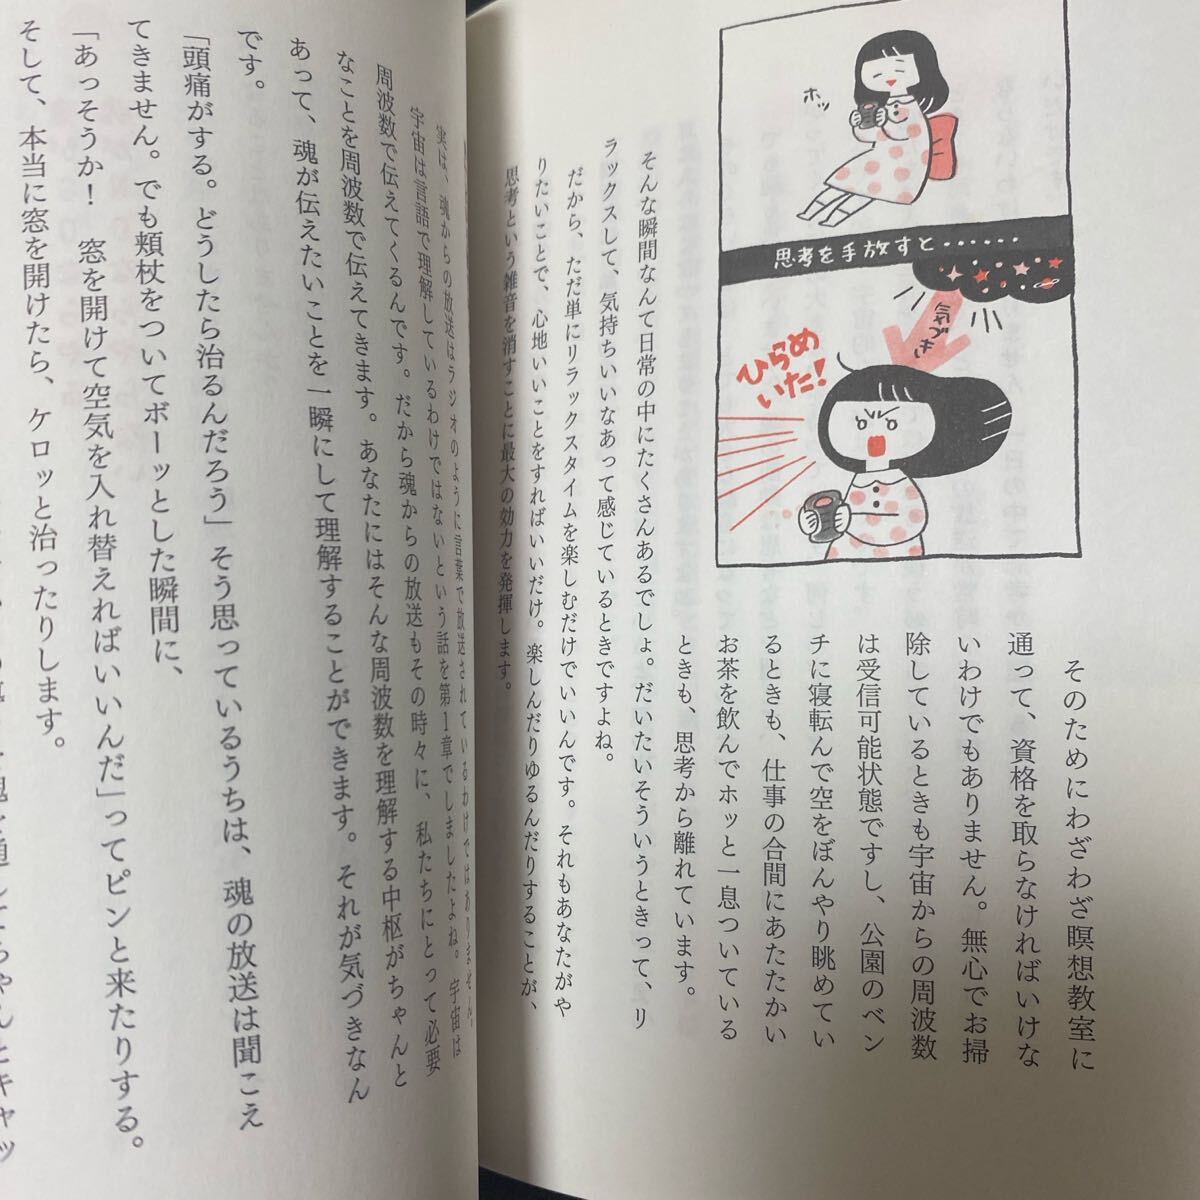 ホッ
思考を手放すと……
気づき
ひらめ
いた!
そのためにわざわざ瞑想教室に
通って、資格を取らなければいけな
いわけでもありません。無心でお掃
除しているときも宇宙からの周波数
は受信可能状態ですし、公園のベン
チに寝転んで空をぼんやり眺めてい
るときも、仕事の合間にあたたかい
お茶を飲んでホッと一息ついている
ときも、思考から離れています。
そんな瞬間なんて日常の中にたくさんあるでしょ。だいたいそういうときって、リ
ラックスして、気持ちいいなあって感じているときですよね。
だから、ただ単にリラックスタイムを楽しむだけでいいんです。それもあなたがや
りたいことで、心地いいことをすればいいだけ。楽しんだりゆるんだりすることが、
思考という雑音を消すことに最大の効力を発揮します。
実は、魂からの放送はラジオのように言葉で放送されているわけではありません。
宇宙は言語で理解しているわけではないという話を第1章でしましたよね。宇宙は
周波数で伝えてくるんです。だから魂からの放送もその時々に、私たちにとって必要
なことを周波数で伝えてきます。あなたにはそんな周波数を理解する中枢がちゃんと
あって、魂が伝えたいことを一瞬にして理解することができます。それが気づきなん
です。
「頭痛がする。どうしたら治るんだろう」そう思っているうちは、魂の放送は聞こえ
てきません。でも頬杖をついてボーッとした瞬間に、
「あっそうか! 窓を開けて空気を入れ替えればいいんだ」ってピンと来たりする。
そして、本当に窓を開けたら、ケロッと治ったりします。